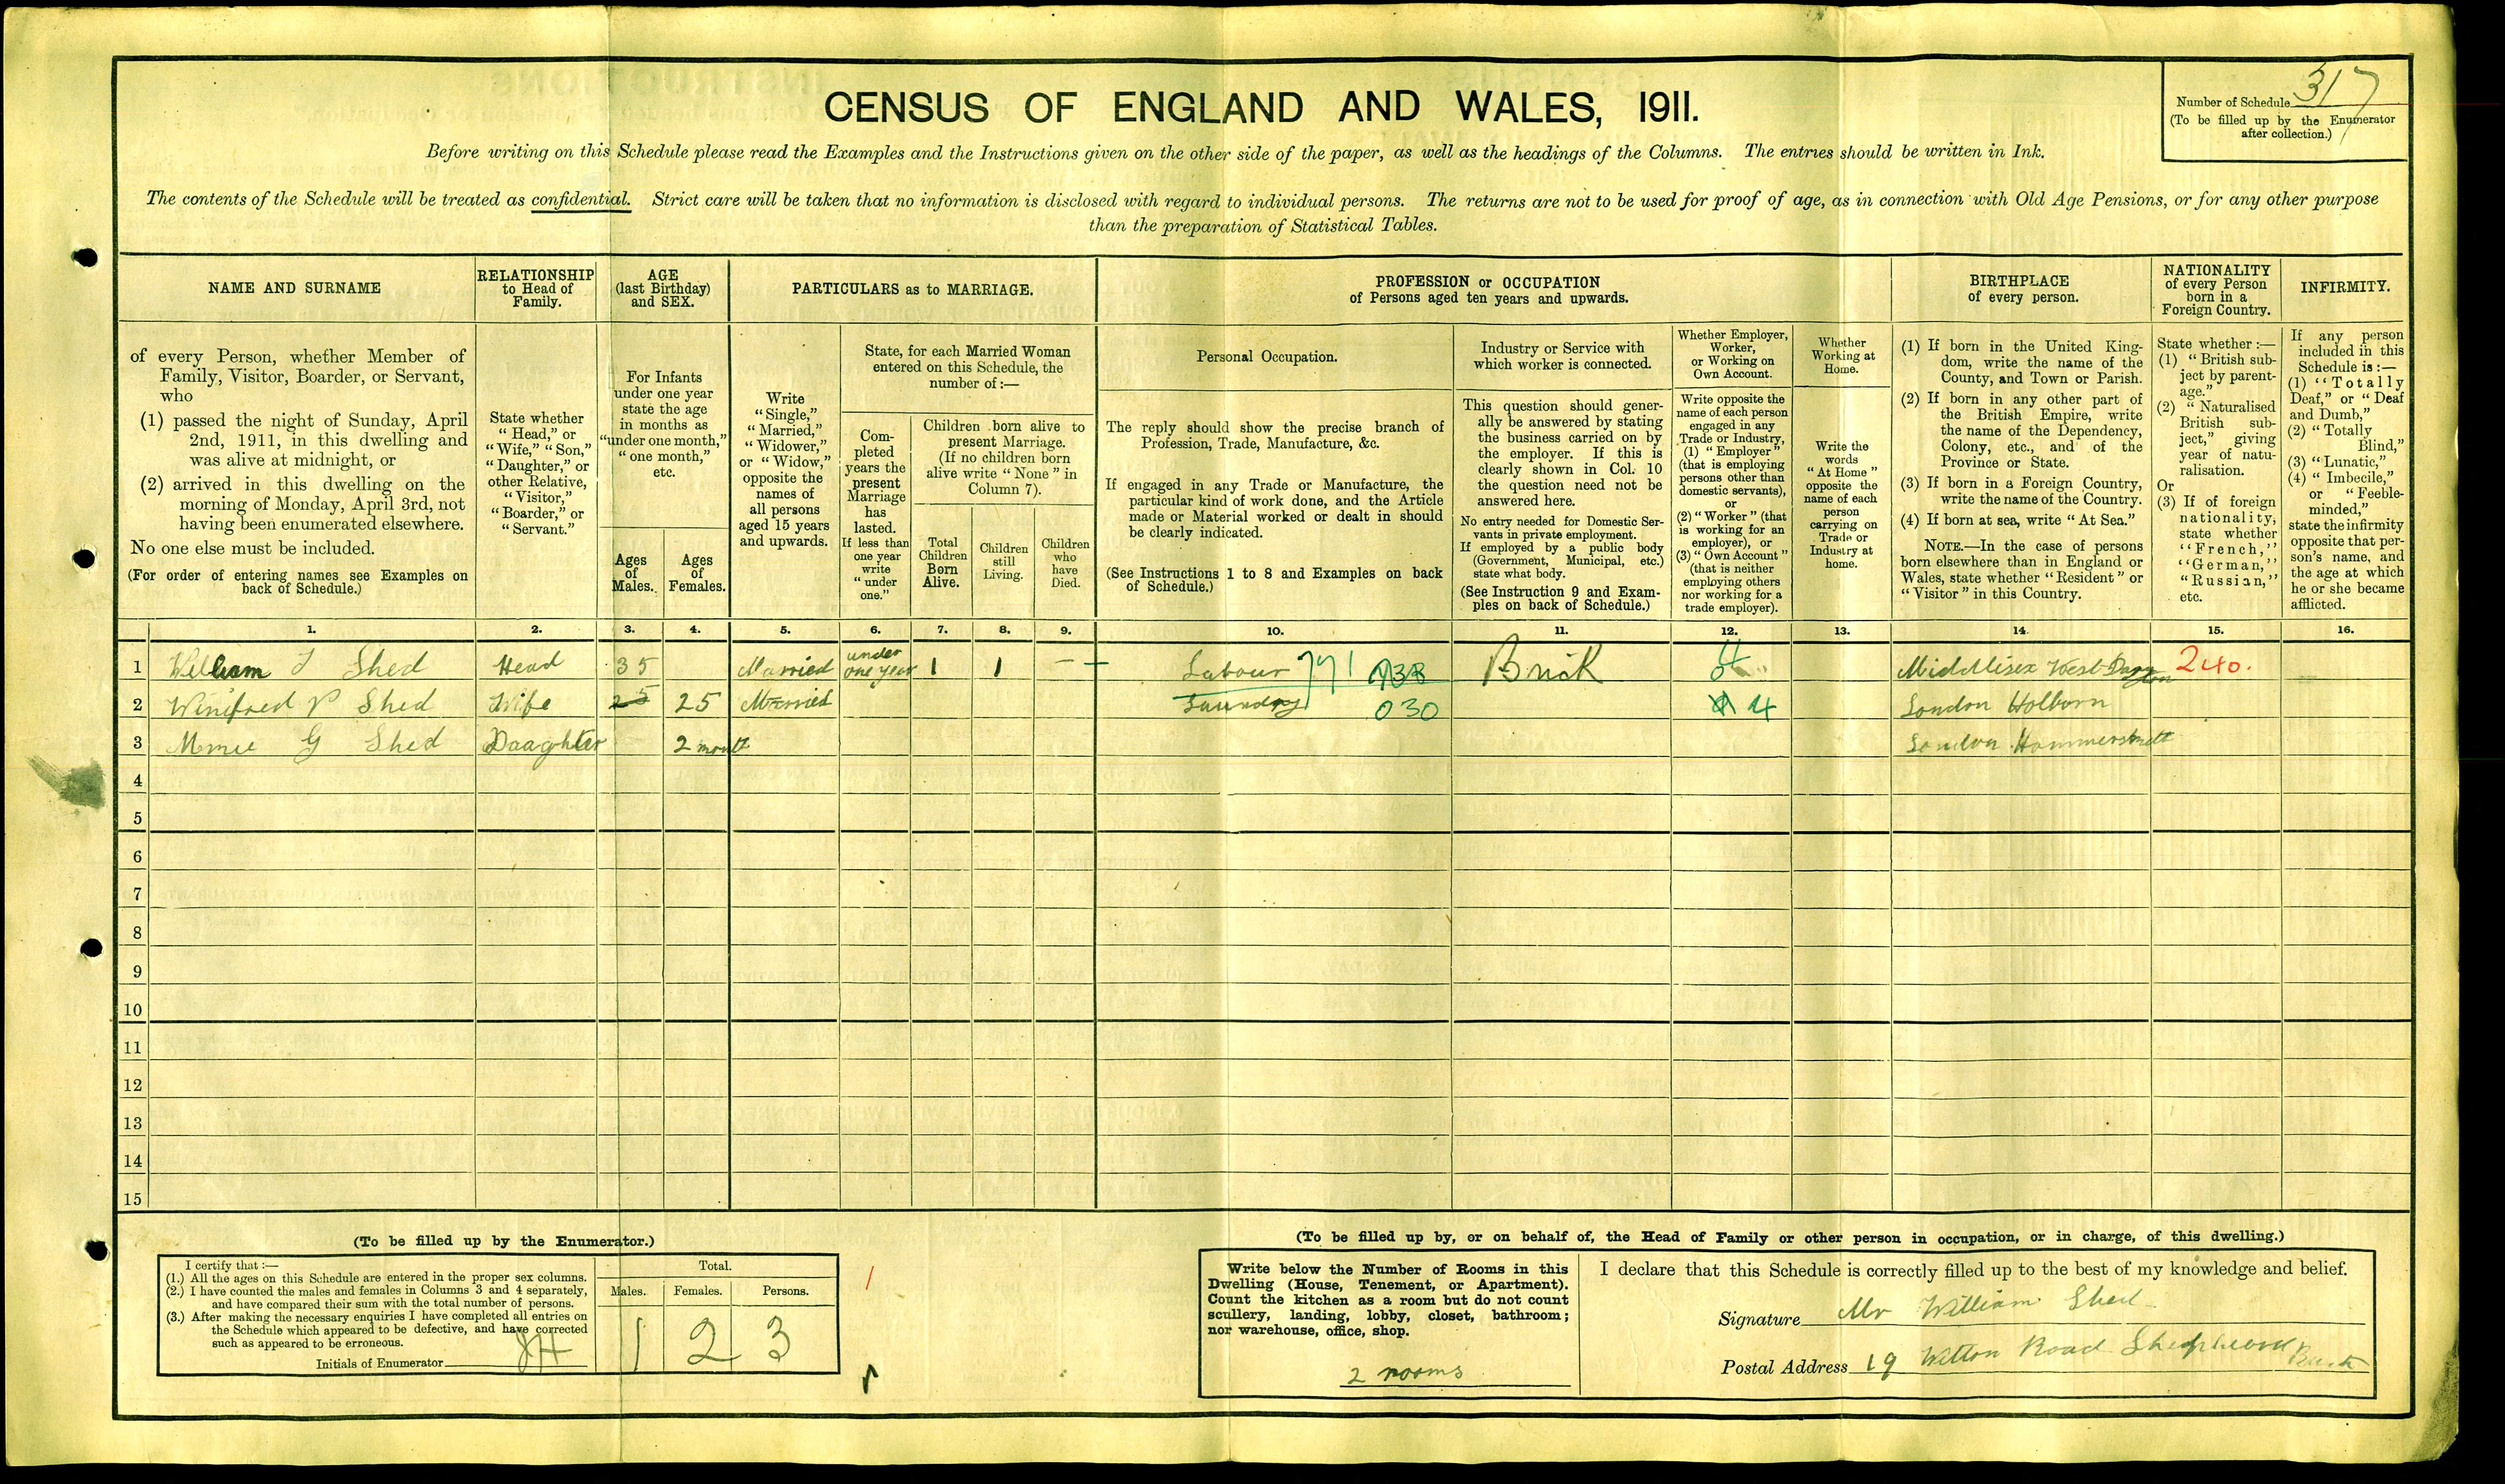 CENSUS OF ENGLAND AND WALES, 1911.
Number of Schedule 317
(To be filled up by the Enumerator
after collection.)
Before writing on this Schedule please read the Examples and the Instructions given on the other side of the paper, as well as the headings of the Columns. The entries should be written in Ink.
The contents of the Schedule will be treated as confidential. Strict care will be taken that no information is disclosed with regard to individual persons. The returns are not to be used for proof of age, as in connection with Old Age Pensions, or for any other purpose
than the preparation of Statistical Tables.
NAME AND SURNAME
of every Person, whether Member of
Family, Visitor, Boarder, or Servant,
who
(1) passed the night of Sunday, April
2nd, 1911, in this dwelling and
was alive at midnight, or
(2) arrived in this dwelling on the
morning of Monday, April 3rd, not
having been enumerated elsewhere.
No one else must be included.
(For order of entering names see Examples on
back of Schedule.)
RELATIONSHIP
to Head of
Family.
State whether
"Head," or
"Wife," "Son,"
"Daughter," or
other Relative,
"Visitor,"
"Boarder," or
"Servant."
AGE
(last Birthday)
and SEX.
For Infants
under one year
state the age
in months as
"under one month,"
"one month,"
etc.
Ages
of
Males.
Ages
of
Females.
PARTICULARS as to MARRIAGE.
Write
"Single,"
"Married,"
"Widower,"
or "Widow,"
opposite the
names of
all persons
aged 15 years
and upwards.
State, for each Married Woman
entered on this Schedule, the
number of:—
Com-
pleted
years the
present
Marriage
has
lasted.
If less than
one year
write
"under
one."
Children born alive to
present Marriage.
(If no children born
alive write "None" in
Column 7).
Total
Children
Born
Alive.
Children
still
Living.
Children
who
have
Died.
PROFESSION or OCCUPATION
of Persons aged ten years and upwards.
Personal Occupation.
The reply should show the precise branch of
Profession, Trade, Manufacture, &c.
If engaged in any Trade or Manufacture, the
particular kind of work done, and the Article
made or Material worked or dealt in should
be clearly indicated.
(See Instructions 1 to 8 and Examples on back
of Schedule.)
Industry or Service with
which worker is connected.
This question should gener-
ally be answered by stating
the business carried on by
the employer. If this is
clearly shown in Col. 10
the question need not be
answered here.
No entry needed for Domestic Ser-
vants in private employment.
If employed by a public body
(Government, Municipal, etc.)
state what body.
(See Instruction 9 and Exam-
ples on back of Schedule.)
Whether Employer,
Worker,
or Working on
Own Account.
Write opposite the
name of each person
engaged in any
Trade or Industry,
(1) "Employer"
(that is employing
persons other than
domestic servants),
or
(2) "Worker" (that
is working for an
employer), or
(3) "Own Account"
(that is neither
employing others
nor working for a
trade employer).
Whether
Working at
Home.
Write the
words
"At Home"
opposite the
name of each
person
carrying on
Trade or
Industry at
home.
BIRTHPLACE
of every person.
(1) If born in the United King-
dom, write the name of the
County, and Town or Parish.
(2) If born in any other part of
the British Empire, write
the name of the Dependency,
Colony, etc., and of the
Province or State.
(3) If born in a Foreign Country,
write the name of the Country.
(4) If born at sea, write "At Sea."
NOTE.—In the case of persons
born elsewhere than in England or
Wales, state whether "Resident" or
"Visitor" in this Country.
NATIONALITY
of every Person
born in a
Foreign Country.
State whether :—
(1) "British sub-
ject by parent-
age."
(2) "Naturalised
British sub-
ject," giving
year of natu-
ralisation.
Or
(3) If of foreign
nationality,
state whether
"French,"
"German,"
"Russian,"
etc.
INFIRMITY.
If any person
included in this
Schedule is :—
(1) "Totally
Deaf," or "Deaf
and Dumb,"
(2) "Totally
Blind,"
(3) "Lunatic,"
(4) "Imbecile,"
or "Feeble-
minded,"
state the infirmity
opposite that per-
son's name, and
the age at which
he or she became
afflicted.
1. 2. 3. 4. 5. 6. 7. 8. 9. 10. 11. 12. 13. 14. 15. 16.
1 William Shed Head 35 Married under one year 1 1 — Labour 791 Brick 4 Middlisex West 240.
2 Winifred Shed Wife 25 25 Married Laundry 030 4 London Holborn
3 G Shed Daaghter 2 month London
4
5
6
7
8
9
10
11
12
13
14
15
(To be filled up by the Enumerator.)
I certify that :—
(1.) All the ages on this Schedule are entered in the proper sex columns.
(2.) I have counted the males and females in Columns 3 and 4 separately,
and have compared their sum with the total number of persons.
(3.) After making the necessary enquiries I have completed all entries on
the Schedule which appeared to be defective, and have corrected
such as appeared to be erroneous.
Initials of Enumerator
Total.
Males. Females. Persons.
1 2 3
(To be filled up by, or on behalf of, the Head of Family or other person in occupation, or in charge, of this dwelling.)
Write below the Number of Rooms in this
Dwelling (House, Tenement, or Apartment).
Count the kitchen as a room but do not count
scullery, landing, lobby, closet, bathroom;
nor warehouse, office, shop.
2 rooms
I declare that this Schedule is correctly filled up to the best of my knowledge and belief.
Signature Mr William Shed
Postal Address 19 Witton Road